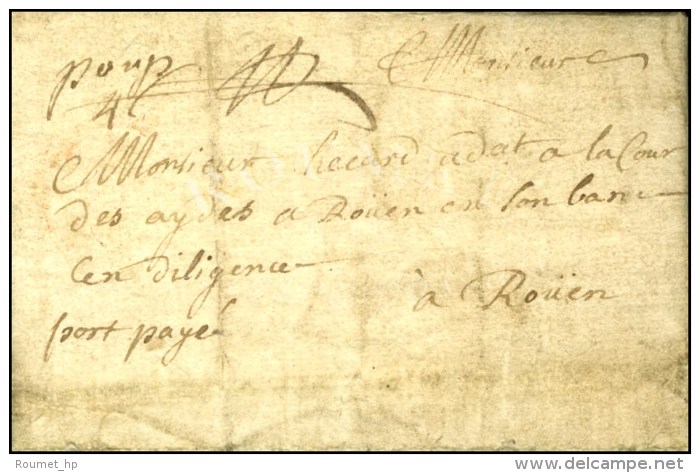 Monsieur
Monsieur hecard adat a la Cour
des aydes a Roüen en son banc
Cen diligence
à Roüen
port payé
Roumet_hp
www.delcampe.net